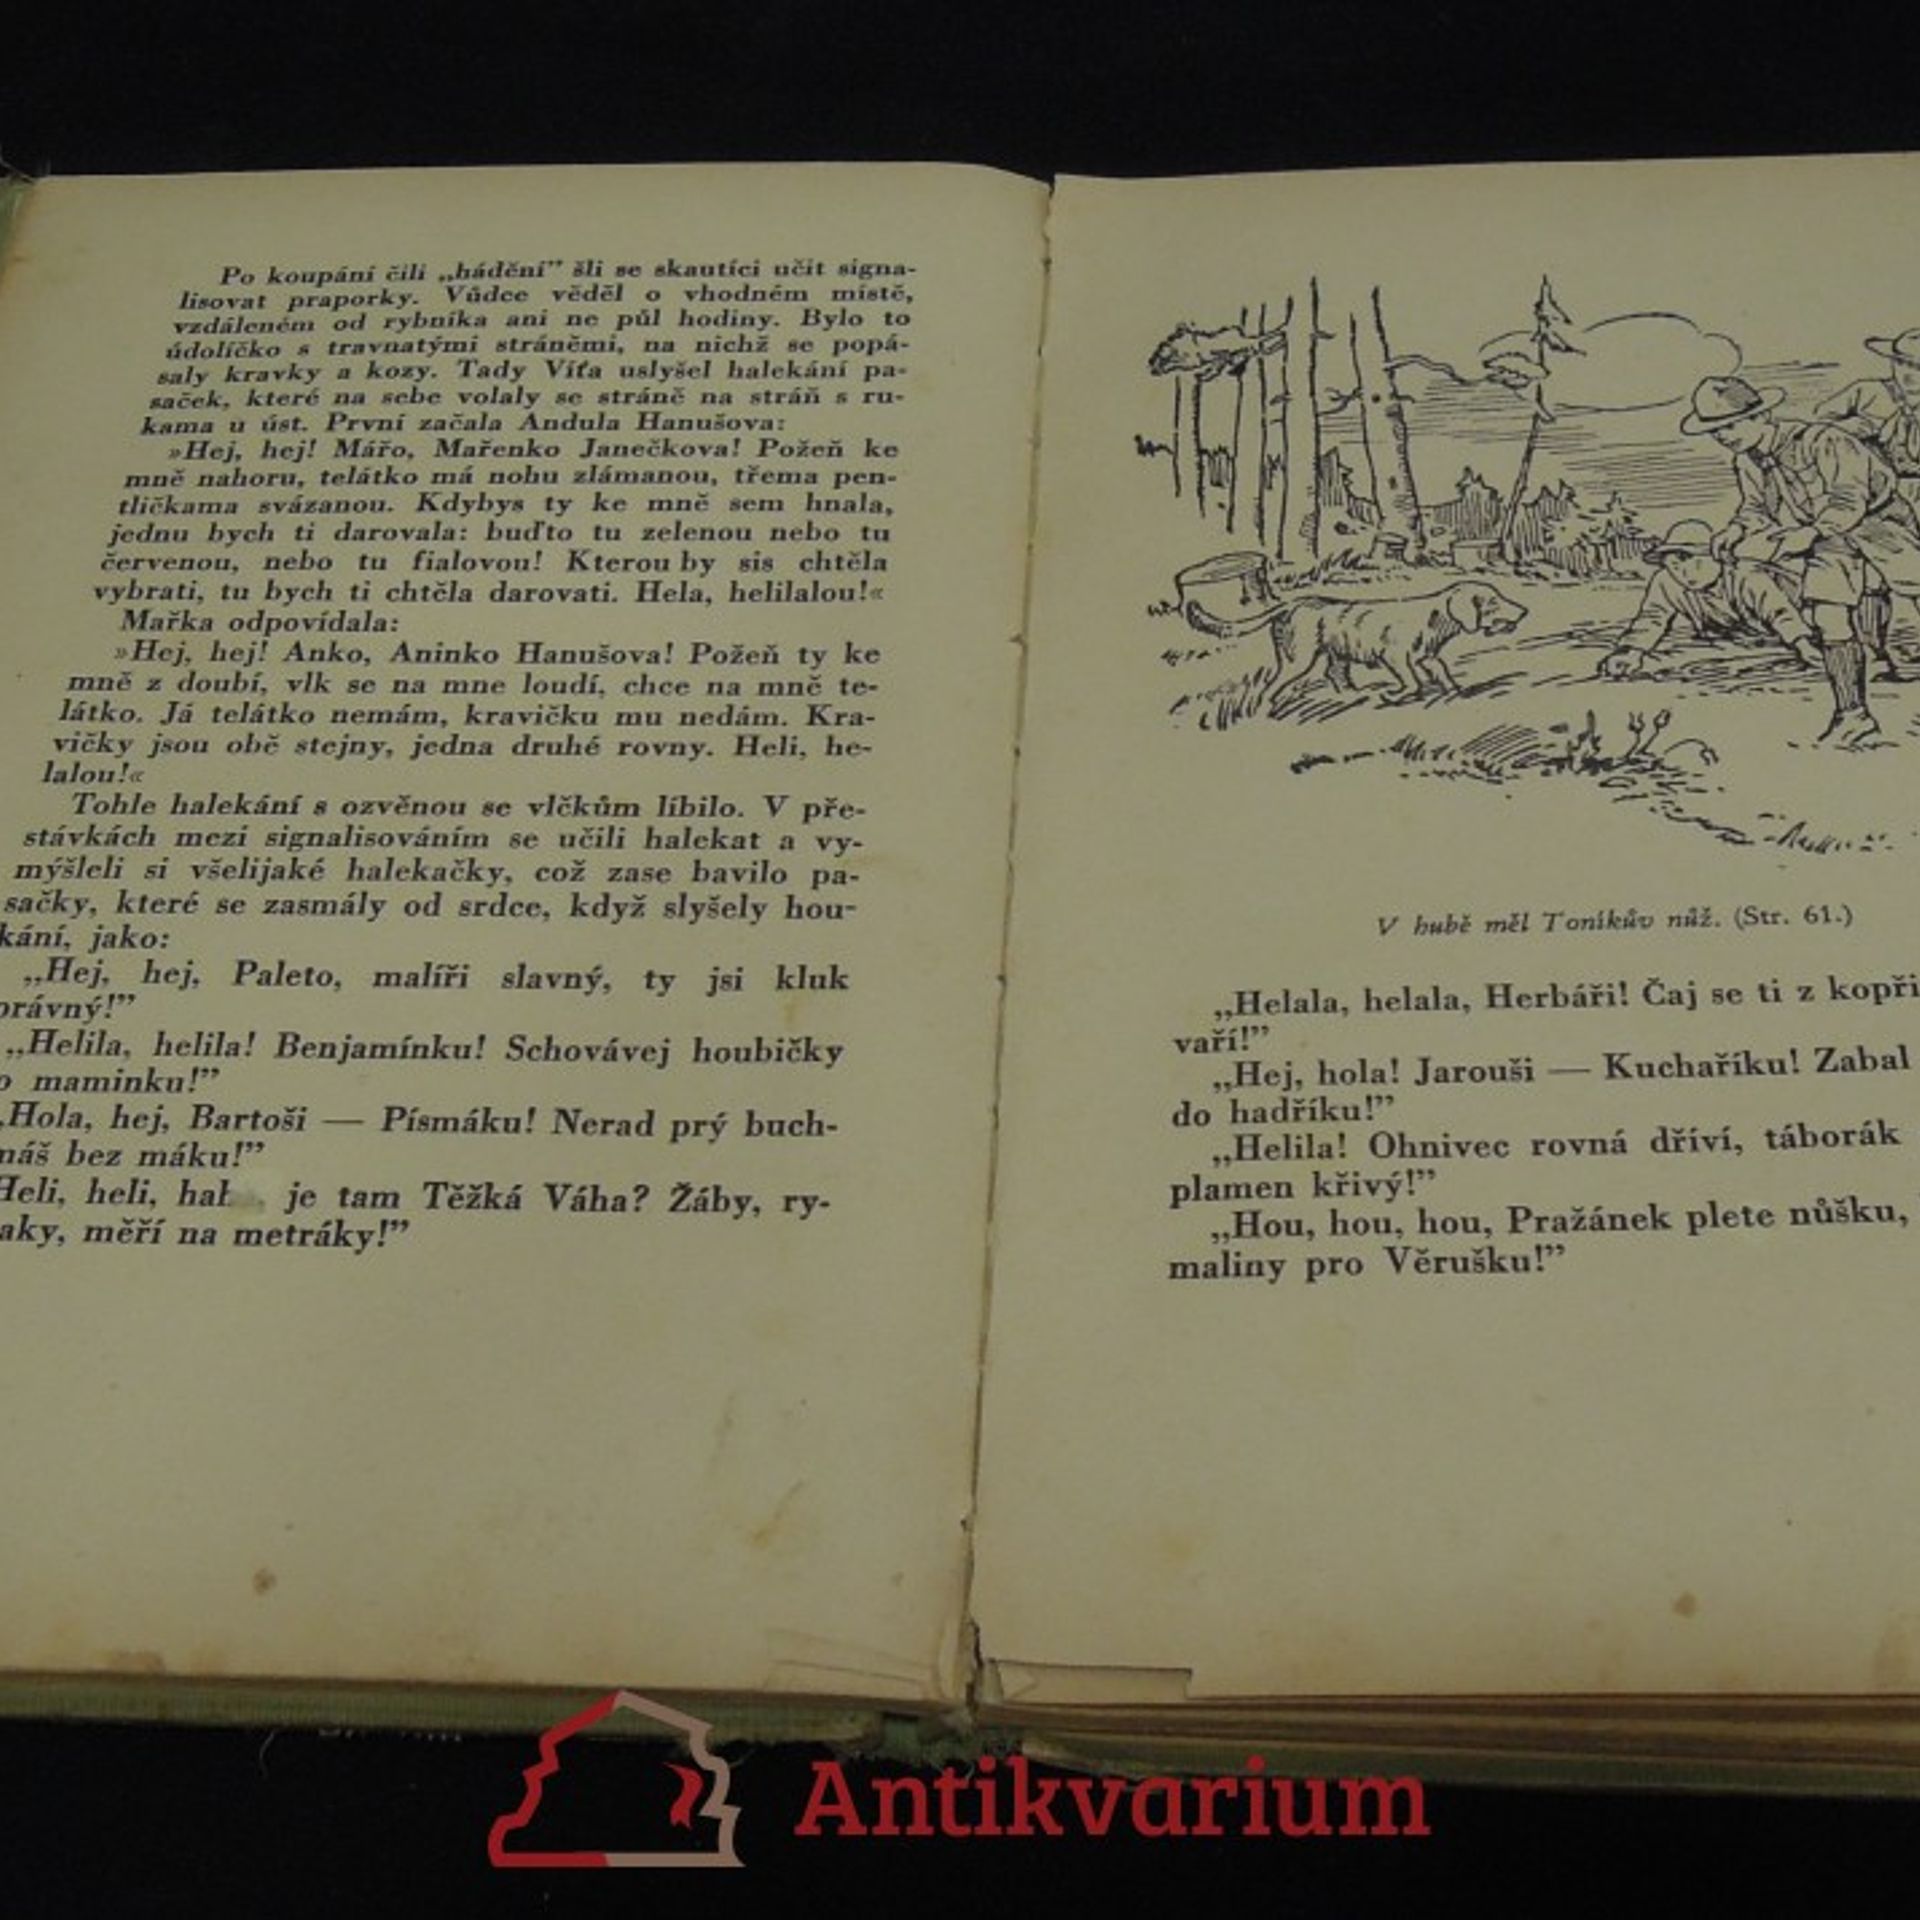 Po koupání čili „hádění” šli se skautíci učit signa-
lisovat praporky. Vůdce věděl o vhodném místě,
vzdáleném od rybníka ani ne půl hodiny. Bylo to
údolíčko s travnatými stráněmi, na nichž se popá-
saly kravky a kozy. Tady Víťa uslyšel halekání pa-
saček, které na sebe volaly se stráně na stráň s ru-
kama u úst. První začala Andula Hanušova:
»Hej, hej! Mářo, Mařenko Janečkova! Požeň ke
mně nahoru, telátko má nohu zlámanou, třema pen-
tličkama svázanou. Kdybys ty ke mně sem hnala,
jednu bych ti darovala: buďto tu zelenou nebo tu
červenou, nebo tu fialovou! Kterou by sis chtěla
vybrati, tu bych ti chtěla darovati. Hela, helilalou!«
Mařka odpovídala:
»Hej, hej! Anko, Aninko Hanušova! Požeň ty ke
mně z doubí, vlk se na mne loudí, chce na mně te-
látko. Já telátko nemám, kravičku mu nedám. Kra-
vičky jsou obě stejny, jedna druhé rovny. Heli, he-
lalou!«
Tohle halekání s ozvěnou se vlčkům líbilo. V pře-
stávkách mezi signalisováním se učili halekat a vy-
mýšleli si všelijaké halekačky, což zase bavilo pa-
sačky, které se zasmály od srdce, když slyšely hou-
kání, jako:
„Hej, hej, Paleto, malíři slavný, ty jsi kluk
právný!”
„Helila, helila! Benjamínku! Schovávej houbičky
o maminku!”
„Hola, hej, Bartoši — Písmáku! Nerad prý buch-
máš bez máku!”
Heli, heli, hal je tam Těžká Váha? Žáby, ry-
aky, měří na metráky!”
V hubě měl Toníkův nůž. (Str. 61.)
„Helala, helala, Herbáři! Čaj se ti z kopři
vaří!”
„Hej, hola! Jarouši — Kuchaříku! Zabal
do hadříku!”
„Helila! Ohnivec rovná dříví, táborák
plamen křivý!”
„Hou, hou, hou, Pražánek plete nůšku,
maliny pro Věrušku!”
Antikvarium